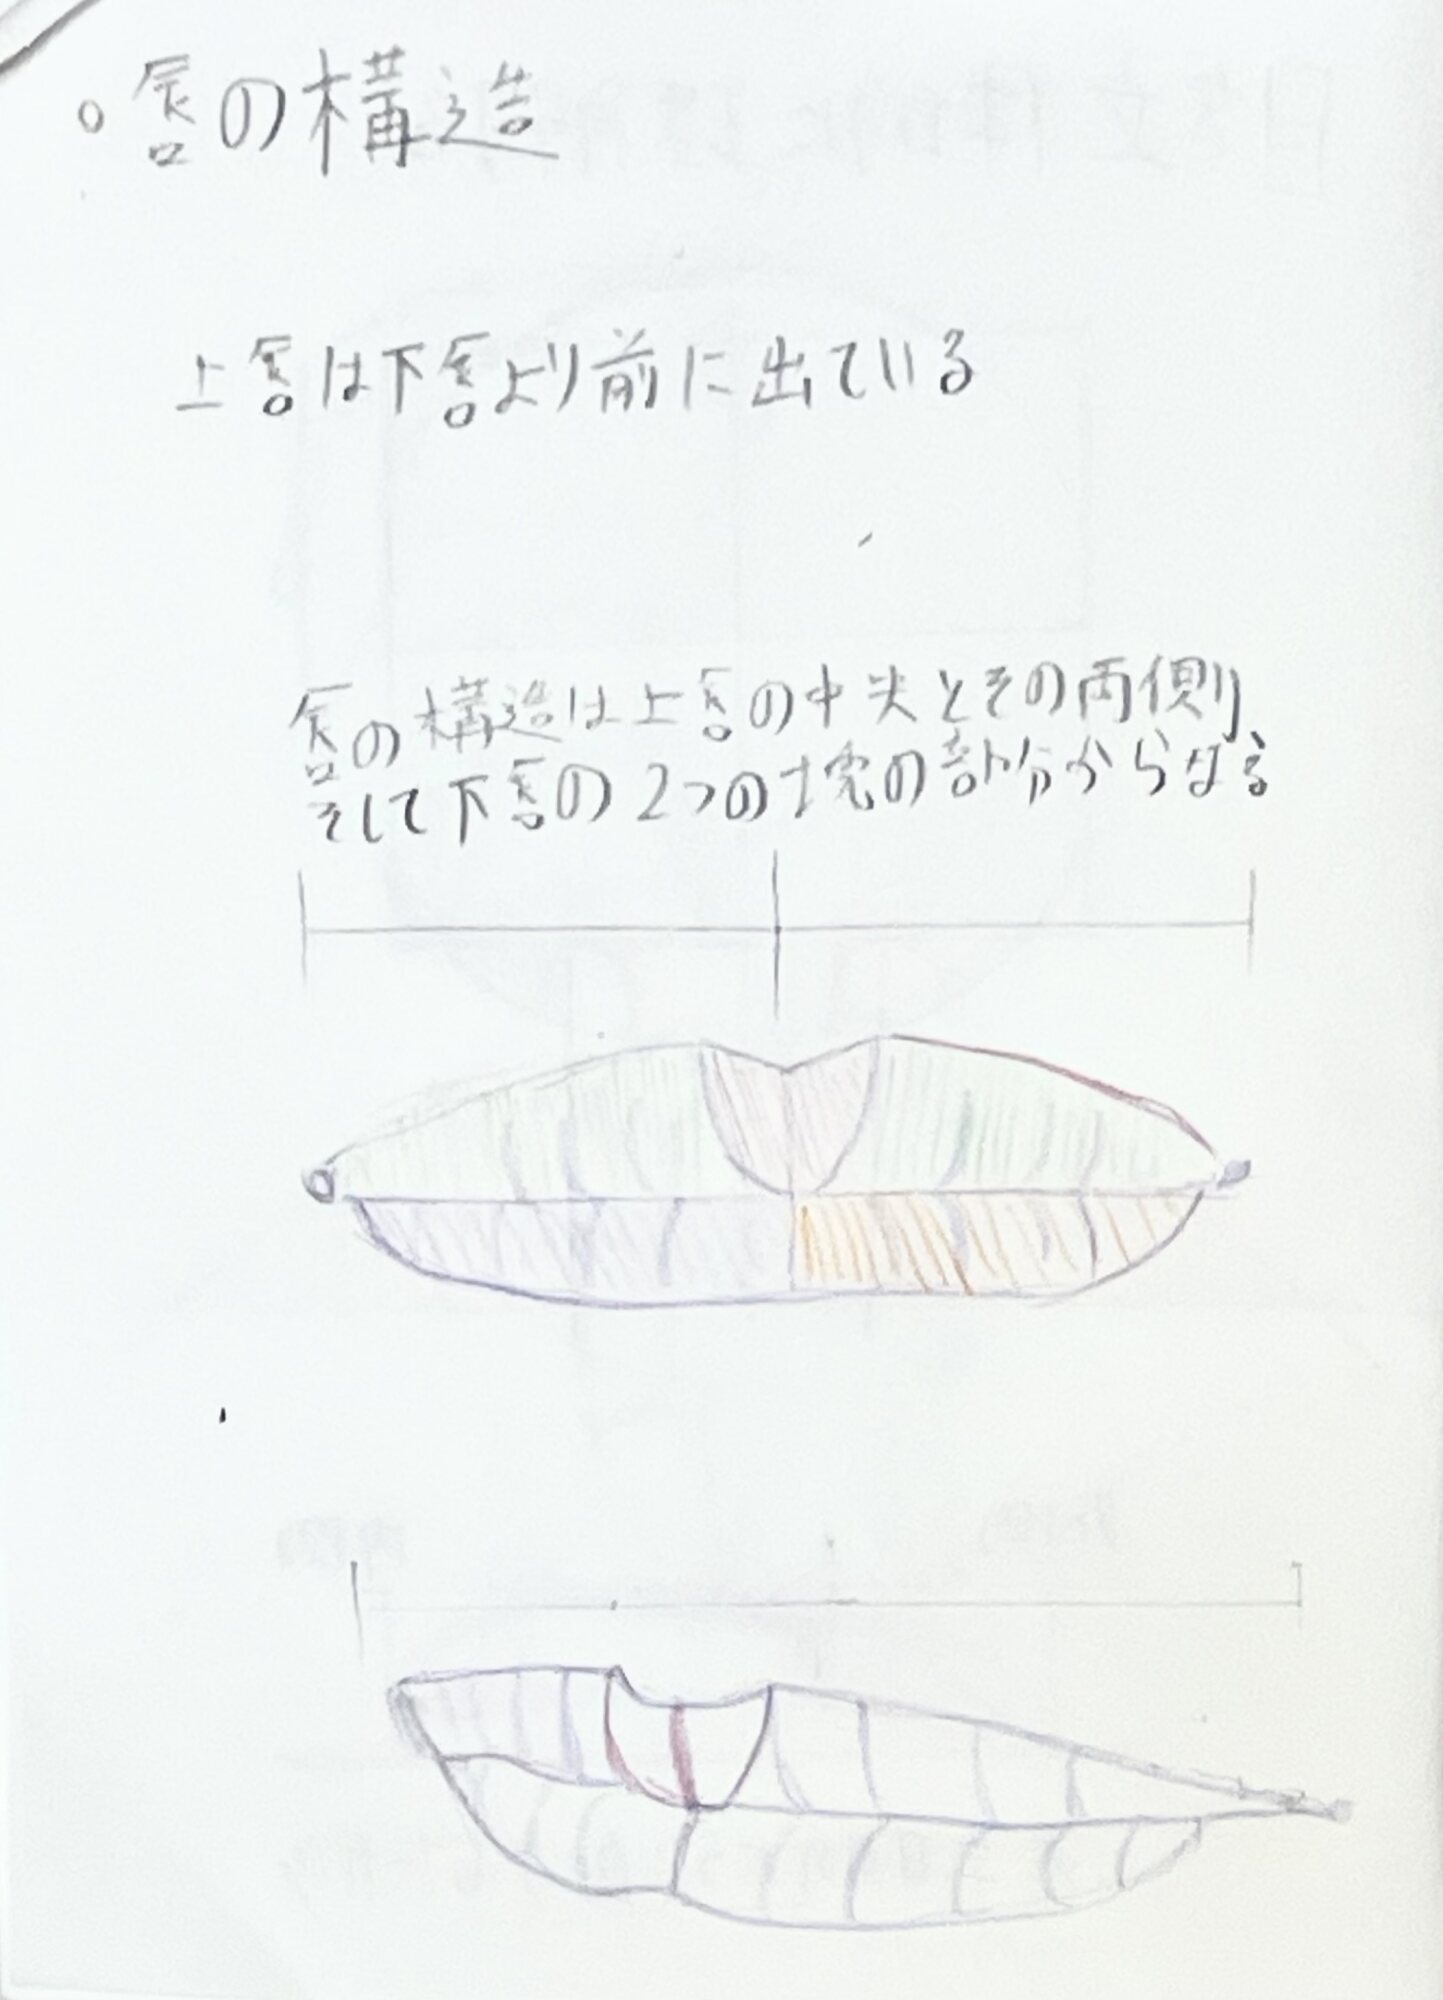 ○唇の構造
上唇は下唇より前に出ている
唇の構造は上唇の中央とその両側、
そして下唇の2つの塊の部分からなる